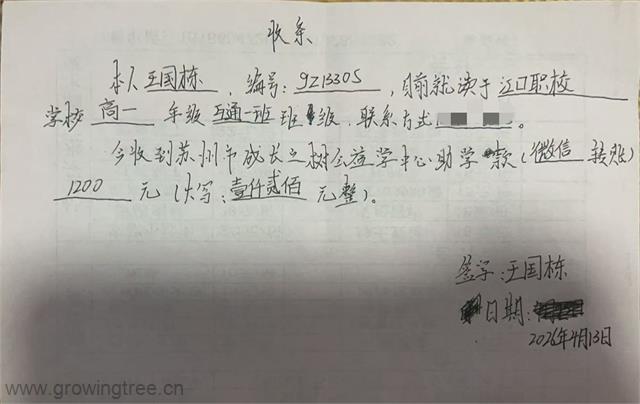 收条
本人王国栋，编号：9213305，目前就读于江口职校
学校高一年级互通一班班级，联系方式。
今收到苏州市成长之树公益学中心助学款（微信转账）
1200元（大写：壹仟贰佰元整）。
签字：王国栋
日期：
2026年4月13日
www.growingtree.cn